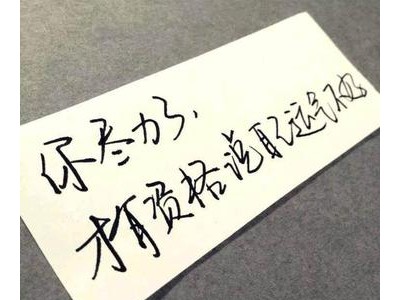 你尽力了、
才有资格说自己运气不好